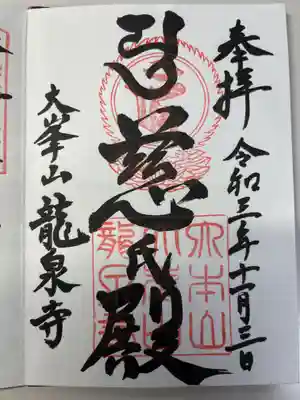 奉拝 令和三年十一月三日
慈氏殿
大峯山 龍泉寺
大本山